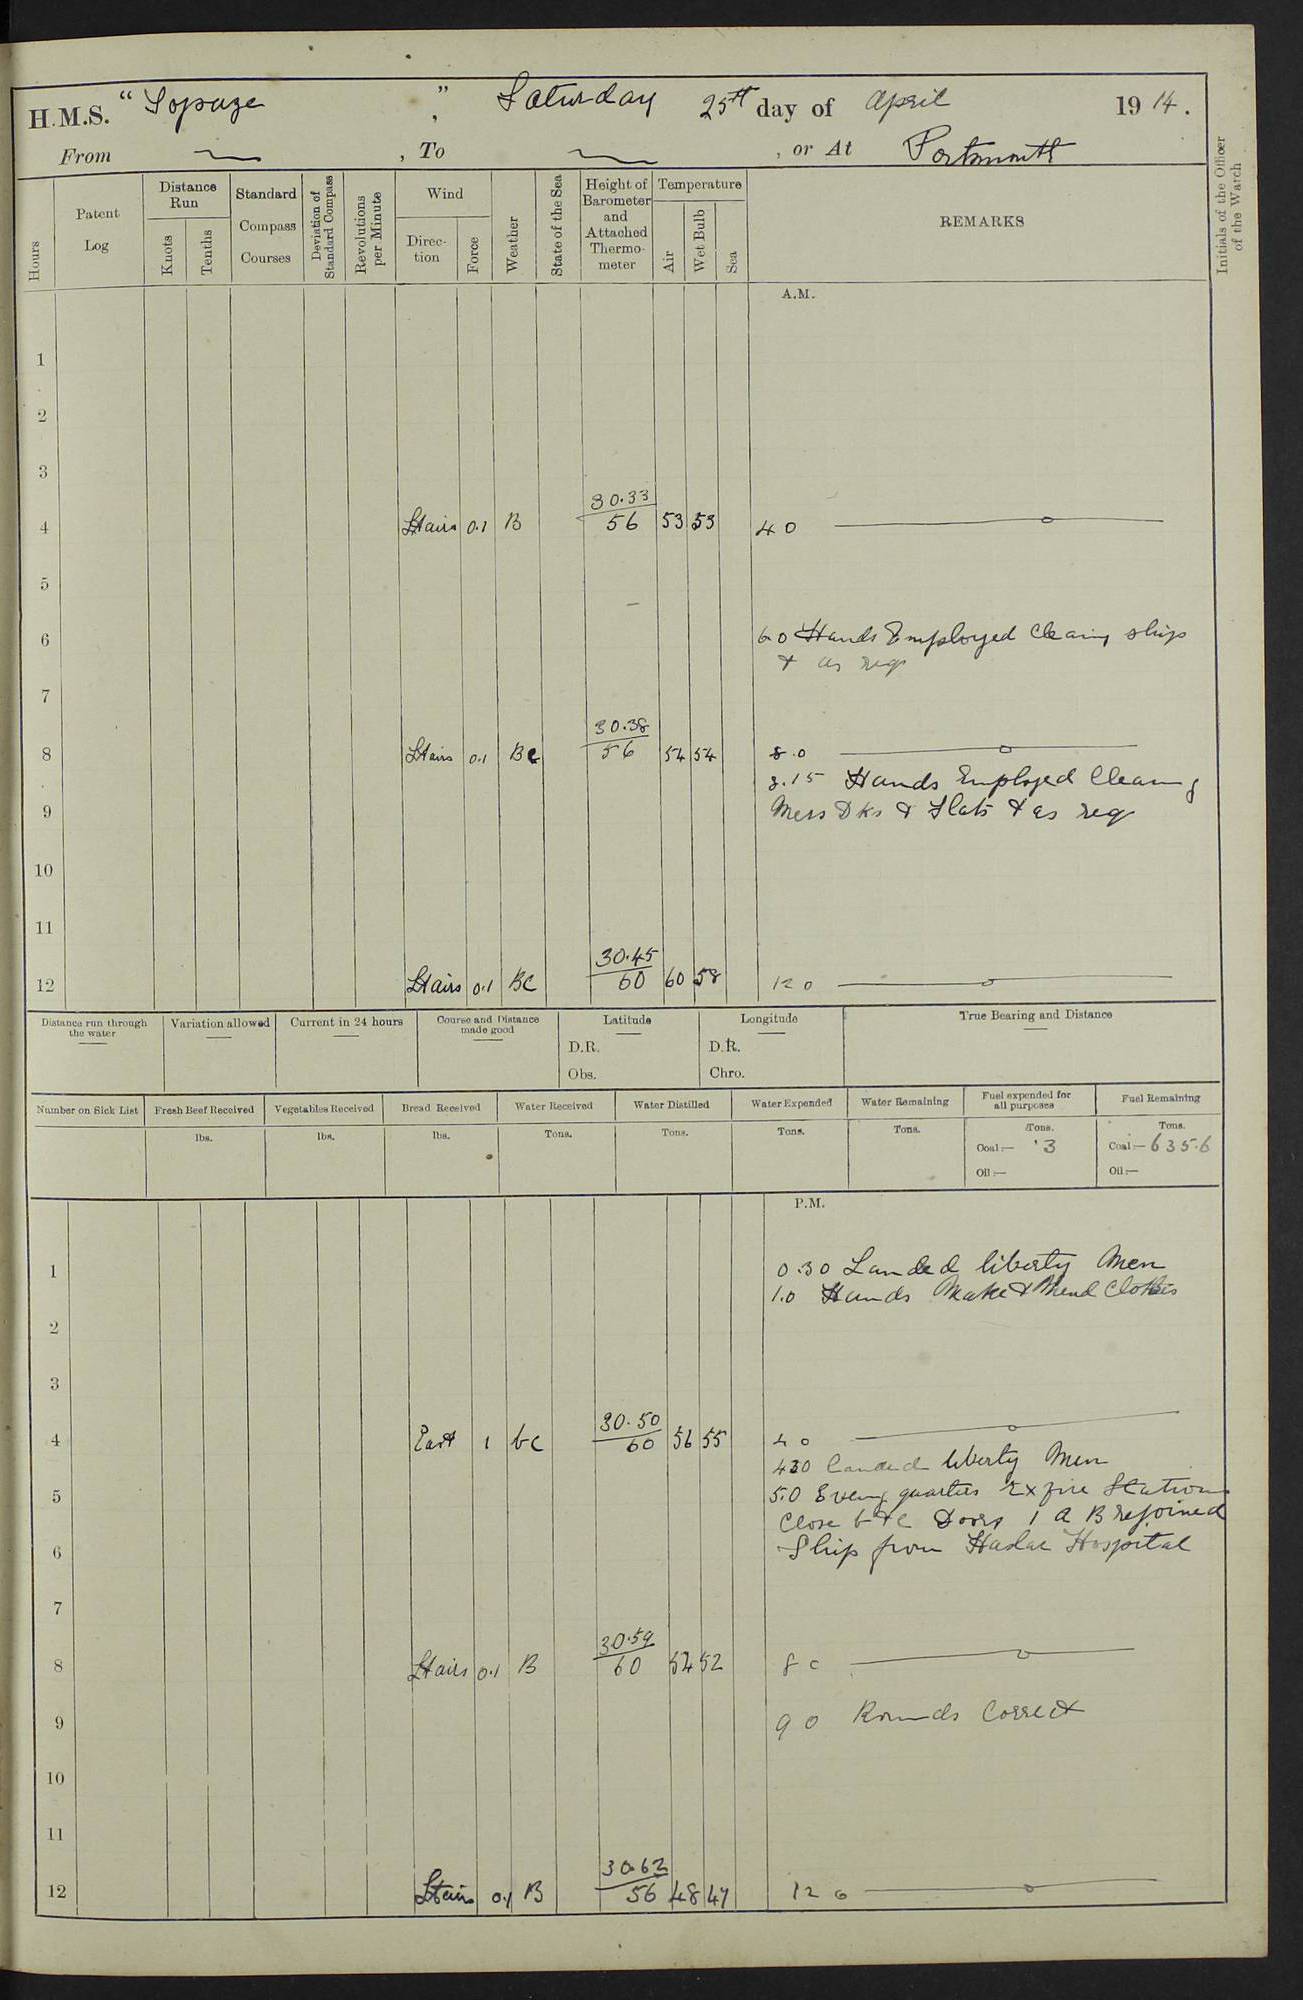 H.M.S. "Topaze", Saturday 25th day of April 1914.
From ~, To ~, or At Portsmouth
Hours
Patent Log
Distance Run
Knots
Tenths
Standard Compass Courses
Deviation of Standard Compass
Revolutions per Minute
Wind
Direction
Force
Weather
State of the Sea
Height of Barometer and Attached Thermometer
Temperature
Air
Wet Bulb
Sea
REMARKS
Initials of the Officer of the Watch
A.M.
1
2
3
30.33
4 Lt airs 0.1 B 56 53 53 4 0
5
6 6 0 Hands Employed Cleaning ship
& as req
7
30.38
8 Lt airs 0.1 BC 56 54 54 8.0
8.15 Hands Employed Cleaning
9 Mess Dks & Flats & as req
10
11
30.45
12 Lt airs 0.1 BC 60 60 58 12 0
Distance run through the water
Variation allowed
Current in 24 hours
Course and Distance made good
Latitude
D.R.
Obs.
Longitude
D.R.
Chro.
True Bearing and Distance
Number on Sick List
Fresh Beef Received
lbs.
Vegetables Received
lbs.
Bread Received
lbs.
Water Received
Tons.
Water Distilled
Tons.
Water Expended
Tons.
Water Remaining
Tons.
Fuel expended for all purposes
Tons.
Coal:— '3
Oil:—
Fuel Remaining
Tons.
Coal:— 635.6
Oil:—
P.M.
1 0.30 Landed liberty Men
1.0 Hands Make & Mend Clothes
2
3
30.50
4 East 1 bc 60 56 55 4 0
430 Landed liberty Men
5 5.0 Eveng quarters Ex fire Stations
Close W T C Doors 1 A B rejoined
6 Ship from Haslar Hospital
7
30.59
8 Lt airs 0.1 B 60 52 52 8 0
9 9 0 Rounds Correct
10
11
30.62
12 Lt airs 0.1 B 56 48 47 12 0